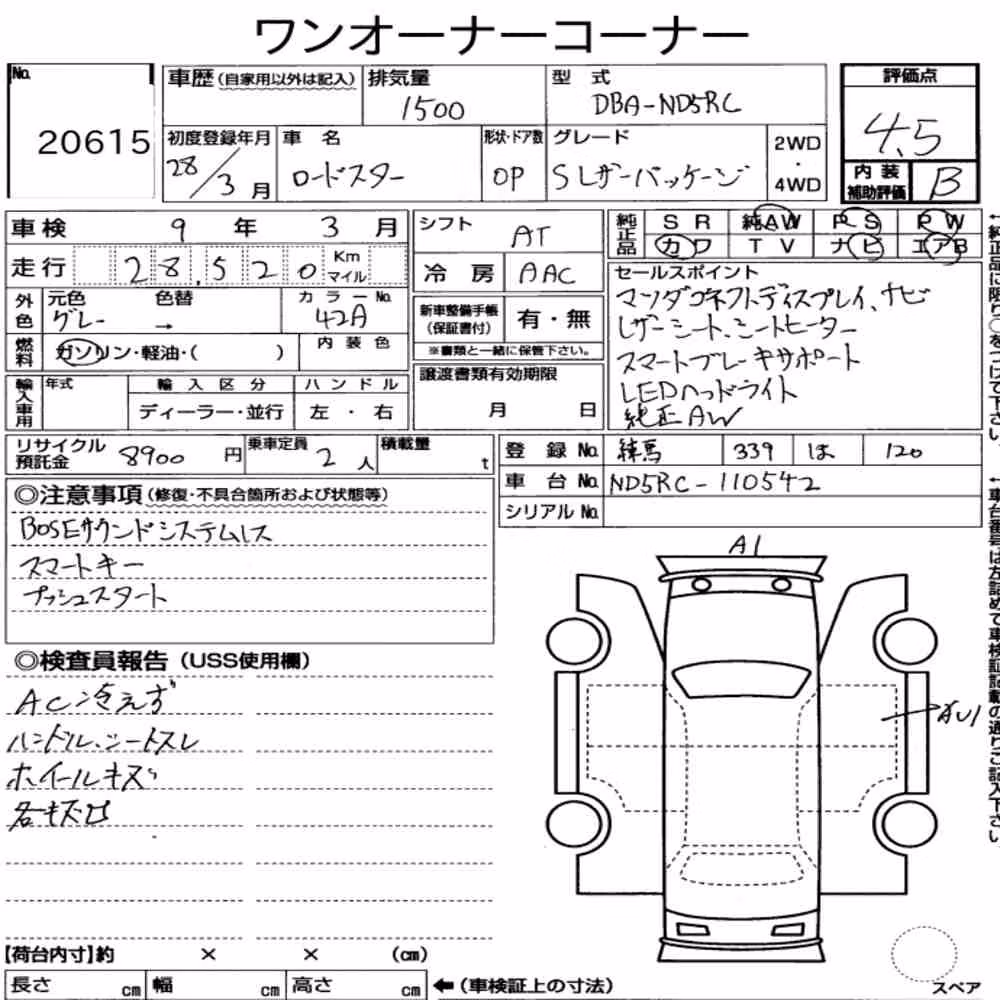 ワンオーナーコーナー
No. 20615
車歴(自家用以外は記入)
排気量 1500
型式 DBA-ND5RC
評価点 4.5
初度登録年月 28/3月
車名 ロードスター
形状・ドア数 OP
グレード Sレザーパッケージ
2WD・4WD
内装補助評価 B
車検 9年3月
シフト AT
純正品 SR 純AW PS PW
カワ TV ナビ エアB
走行 28,520 Km マイル
冷房 AAC
セールスポイント
マツダコネクトディスプレイ、ナビ
レザーシート、シートヒーター
スマートブレーキサポート
LEDヘッドライト
純正AW
外色 元色 グレー 色替 → カラーNo. 42A
新車整備手帳(保証書付) 有・無
※書類と一緒に保管下さい。
燃料 ガソリン・軽油・( ) 内装色
譲渡書類有効期限
月 日
輸入車用 年式 輸入区分 ハンドル
ディーラー・並行 左・右
リサイクル預託金 8900円
乗車定員 2人
積載量 t
登録No. 練馬 339 は 120
車台No. ND5RC-110542
シリアルNo.
◎注意事項(修復・不具合箇所および状態等)
BOSEサウンドシステムレス
スマートキー
プッシュスタート
A1
AU1
◎検査員報告(USS使用欄)
AC冷えず
ハンドル、シートスレ
ホイールキズ
各キズ凹
【荷台内寸】約 × × (cm)
長さ cm 幅 cm 高さ cm ←(車検証上の寸法)
スペア
←純正品に限り○をつけて下さい。
←車台番号は左詰めで車検証記載の通りご記入下さい。